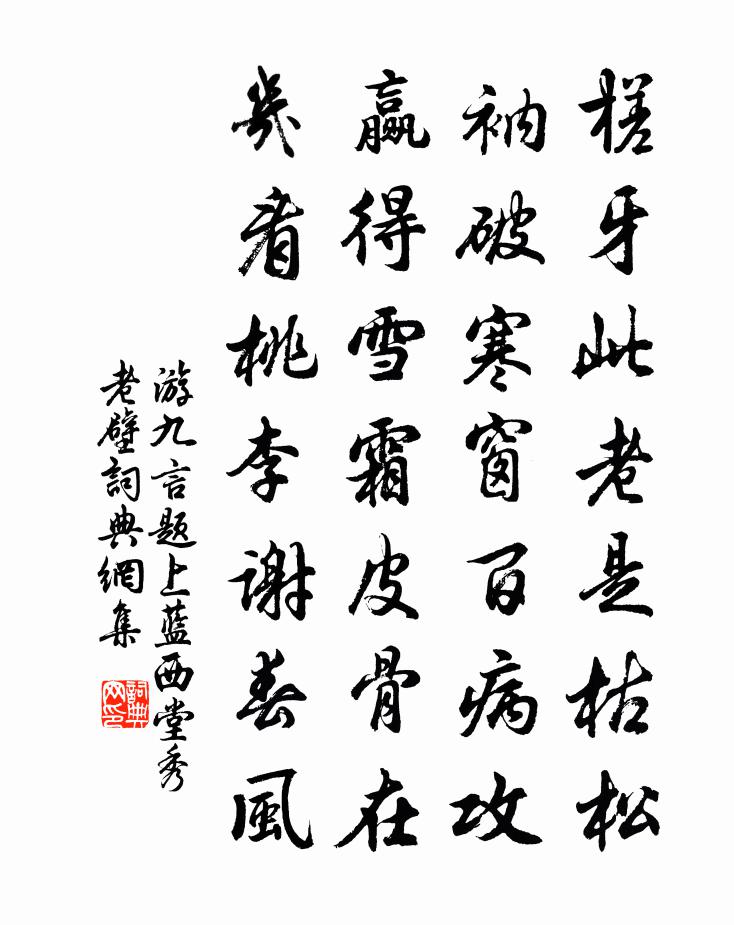 槎牙此老是枯松
衲破寒窗百病攻
赢得雪霜皮骨在
幾看桃李谢春風
游九言題上蓝西堂秀
老壁詞典網集
詞典网印